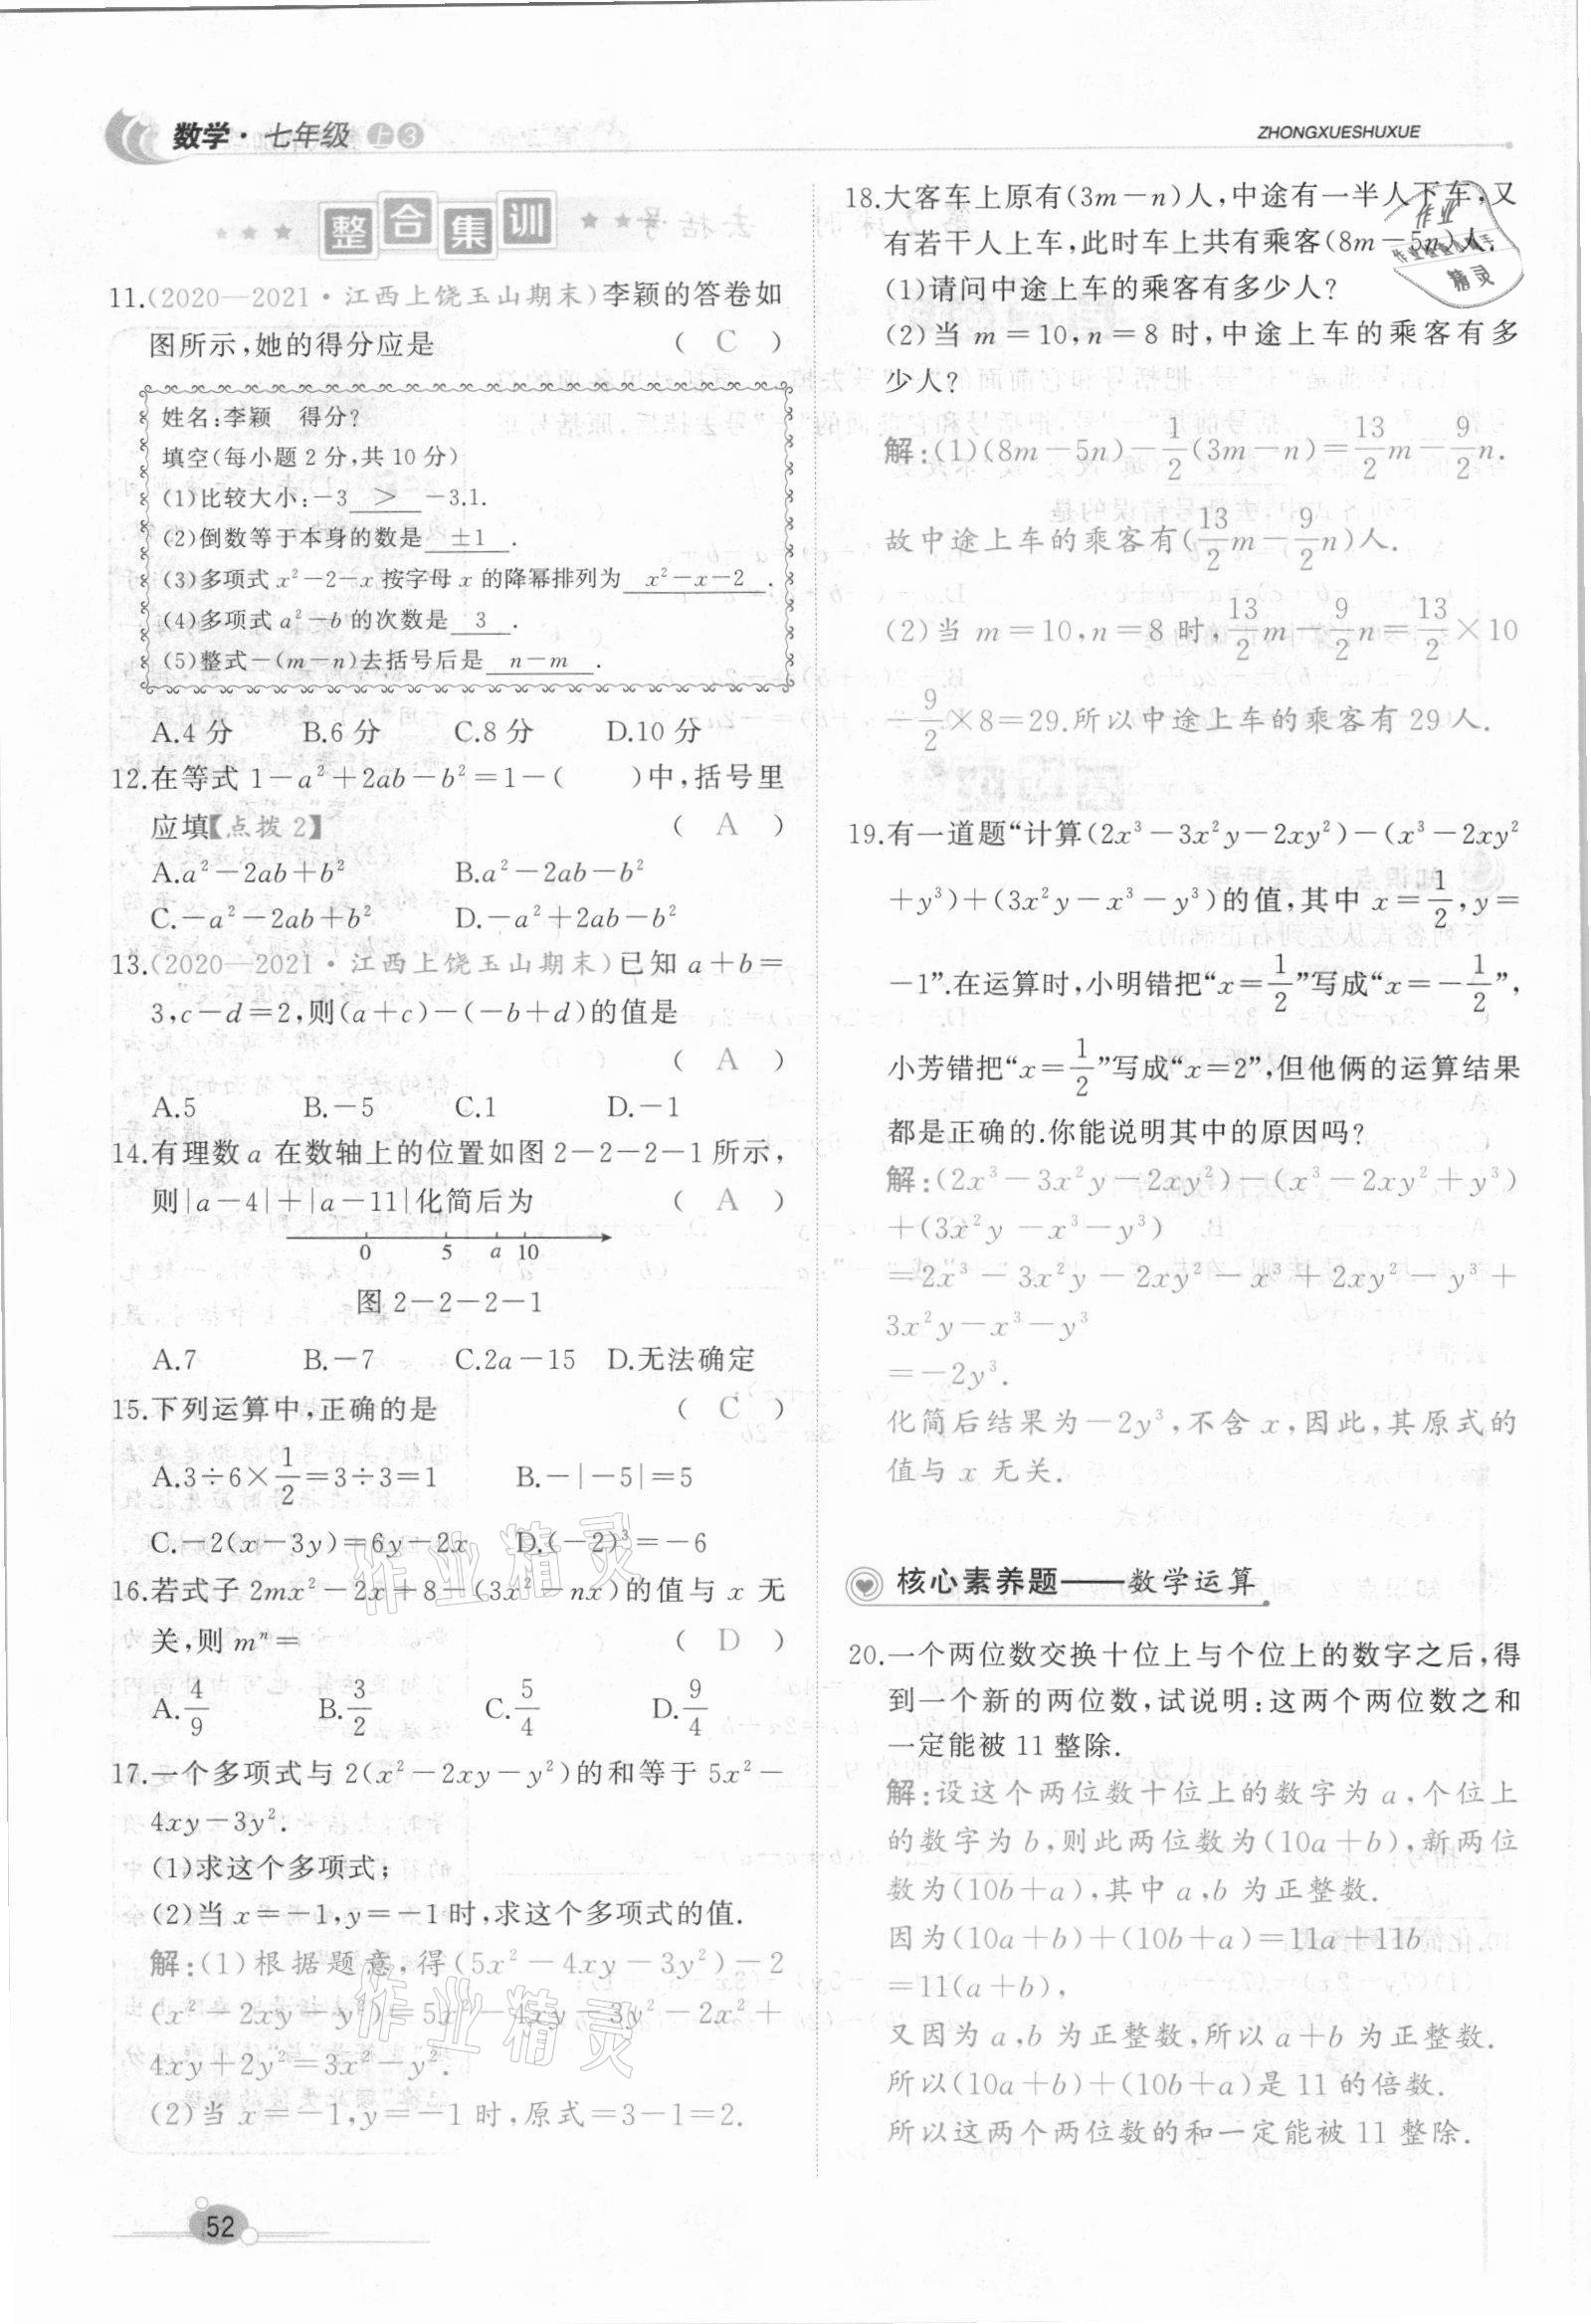 数学·七年级 上 3
ZHONGXUESHUXUE
整合集训
11.(2020—2021·江西上饶玉山期末)李颖的答卷如
图所示,她的得分应是 ( C )
姓名:李颖 得分?
填空(每小题2分,共10分)
(1)比较大小:-3 > -3.1.
(2)倒数等于本身的数是 ±1 .
(3)多项式 x²-2-x 按字母 x 的降幂排列为 x²-x-2 .
(4)多项式 a²-b 的次数是 3 .
(5)整式-(m-n)去括号后是 n-m .
A.4分 B.6分 C.8分 D.10分
12.在等式 1-a²+2ab-b²=1-( )中,括号里
应填【点拨2】 ( A )
A.a²-2ab+b² B.a²-2ab-b²
C.-a²-2ab+b² D.-a²+2ab-b²
13.(2020—2021·江西上饶玉山期末)已知 a+b=
3,c-d=2,则(a+c)-(-b+d)的值是
( A )
A.5 B.-5 C.1 D.-1
14.有理数 a 在数轴上的位置如图2-2-2-1所示,
则|a-4|+|a-11|化简后为 ( A )
0 5 a 10
图2-2-2-1
A.7 B.-7 C.2a-15 D.无法确定
15.下列运算中,正确的是 ( C )
A.3÷6×1/2=3÷3=1 B.-|-5|=5
C.-2(x-3y)=6y-2x D.(-2)³=-6
16.若式子 2mx²-2x+8-(3x²-nx)的值与 x 无
关,则 mⁿ= ( D )
A.4/9 B.3/2 C.5/4 D.9/4
17.一个多项式与 2(x²-2xy-y²)的和等于 5x²-
4xy-3y².
(1)求这个多项式;
(2)当 x=-1,y=-1时,求这个多项式的值.
解:(1)根据题意,得(5x²-4xy-3y²)-2
(x²-2xy-y²)=5x²-4xy-3y²-2x²+
4xy+2y²=3x²-y².
(2)当 x=-1,y=-1时,原式=3-1=2.
52
18.大客车上原有(3m-n)人,中途有一半人下车,又
有若干人上车,此时车上共有乘客(8m-5n)人.
(1)请问中途上车的乘客有多少人?
(2)当 m=10,n=8时,中途上车的乘客有多
少人?
解:(1)(8m-5n)-1/2(3m-n)=13/2m-9/2n.
故中途上车的乘客有(13/2m-9/2n)人.
(2)当 m=10,n=8时,13/2m-9/2n=13/2×10
-9/2×8=29.所以中途上车的乘客有29人.
19.有一道题“计算(2x³-3x²y-2xy²)-(x³-2xy²
+y³)+(3x²y-x³-y³)的值,其中 x=1/2,y=
-1”.在运算时,小明错把“x=1/2”写成“x=-1/2”,
小芳错把“x=1/2”写成“x=2”,但他俩的运算结果
都是正确的.你能说明其中的原因吗?
解:(2x³-3x²y-2xy²)-(x³-2xy²+y³)
+(3x²y-x³-y³)
=2x³-3x²y-2xy²-x³+2xy²-y³+
3x²y-x³-y³
=-2y³.
化简后结果为-2y³,不含 x,因此,其原式的
值与 x 无关.
核心素养题——数学运算
20.一个两位数交换十位上与个位上的数字之后,得
到一个新的两位数,试说明:这两个两位数之和
一定能被11整除.
解:设这个两位数十位上的数字为 a,个位上
的数字为 b,则此两位数为(10a+b),新两位
数为(10b+a),其中 a,b 为正整数.
因为(10a+b)+(10b+a)=11a+11b
=11(a+b),
又因为 a,b 为正整数,所以 a+b 为正整数.
所以(10a+b)+(10b+a)是11的倍数.
所以这两个两位数的和一定能被11整除.
作业精灵
作业精灵
作业
精灵